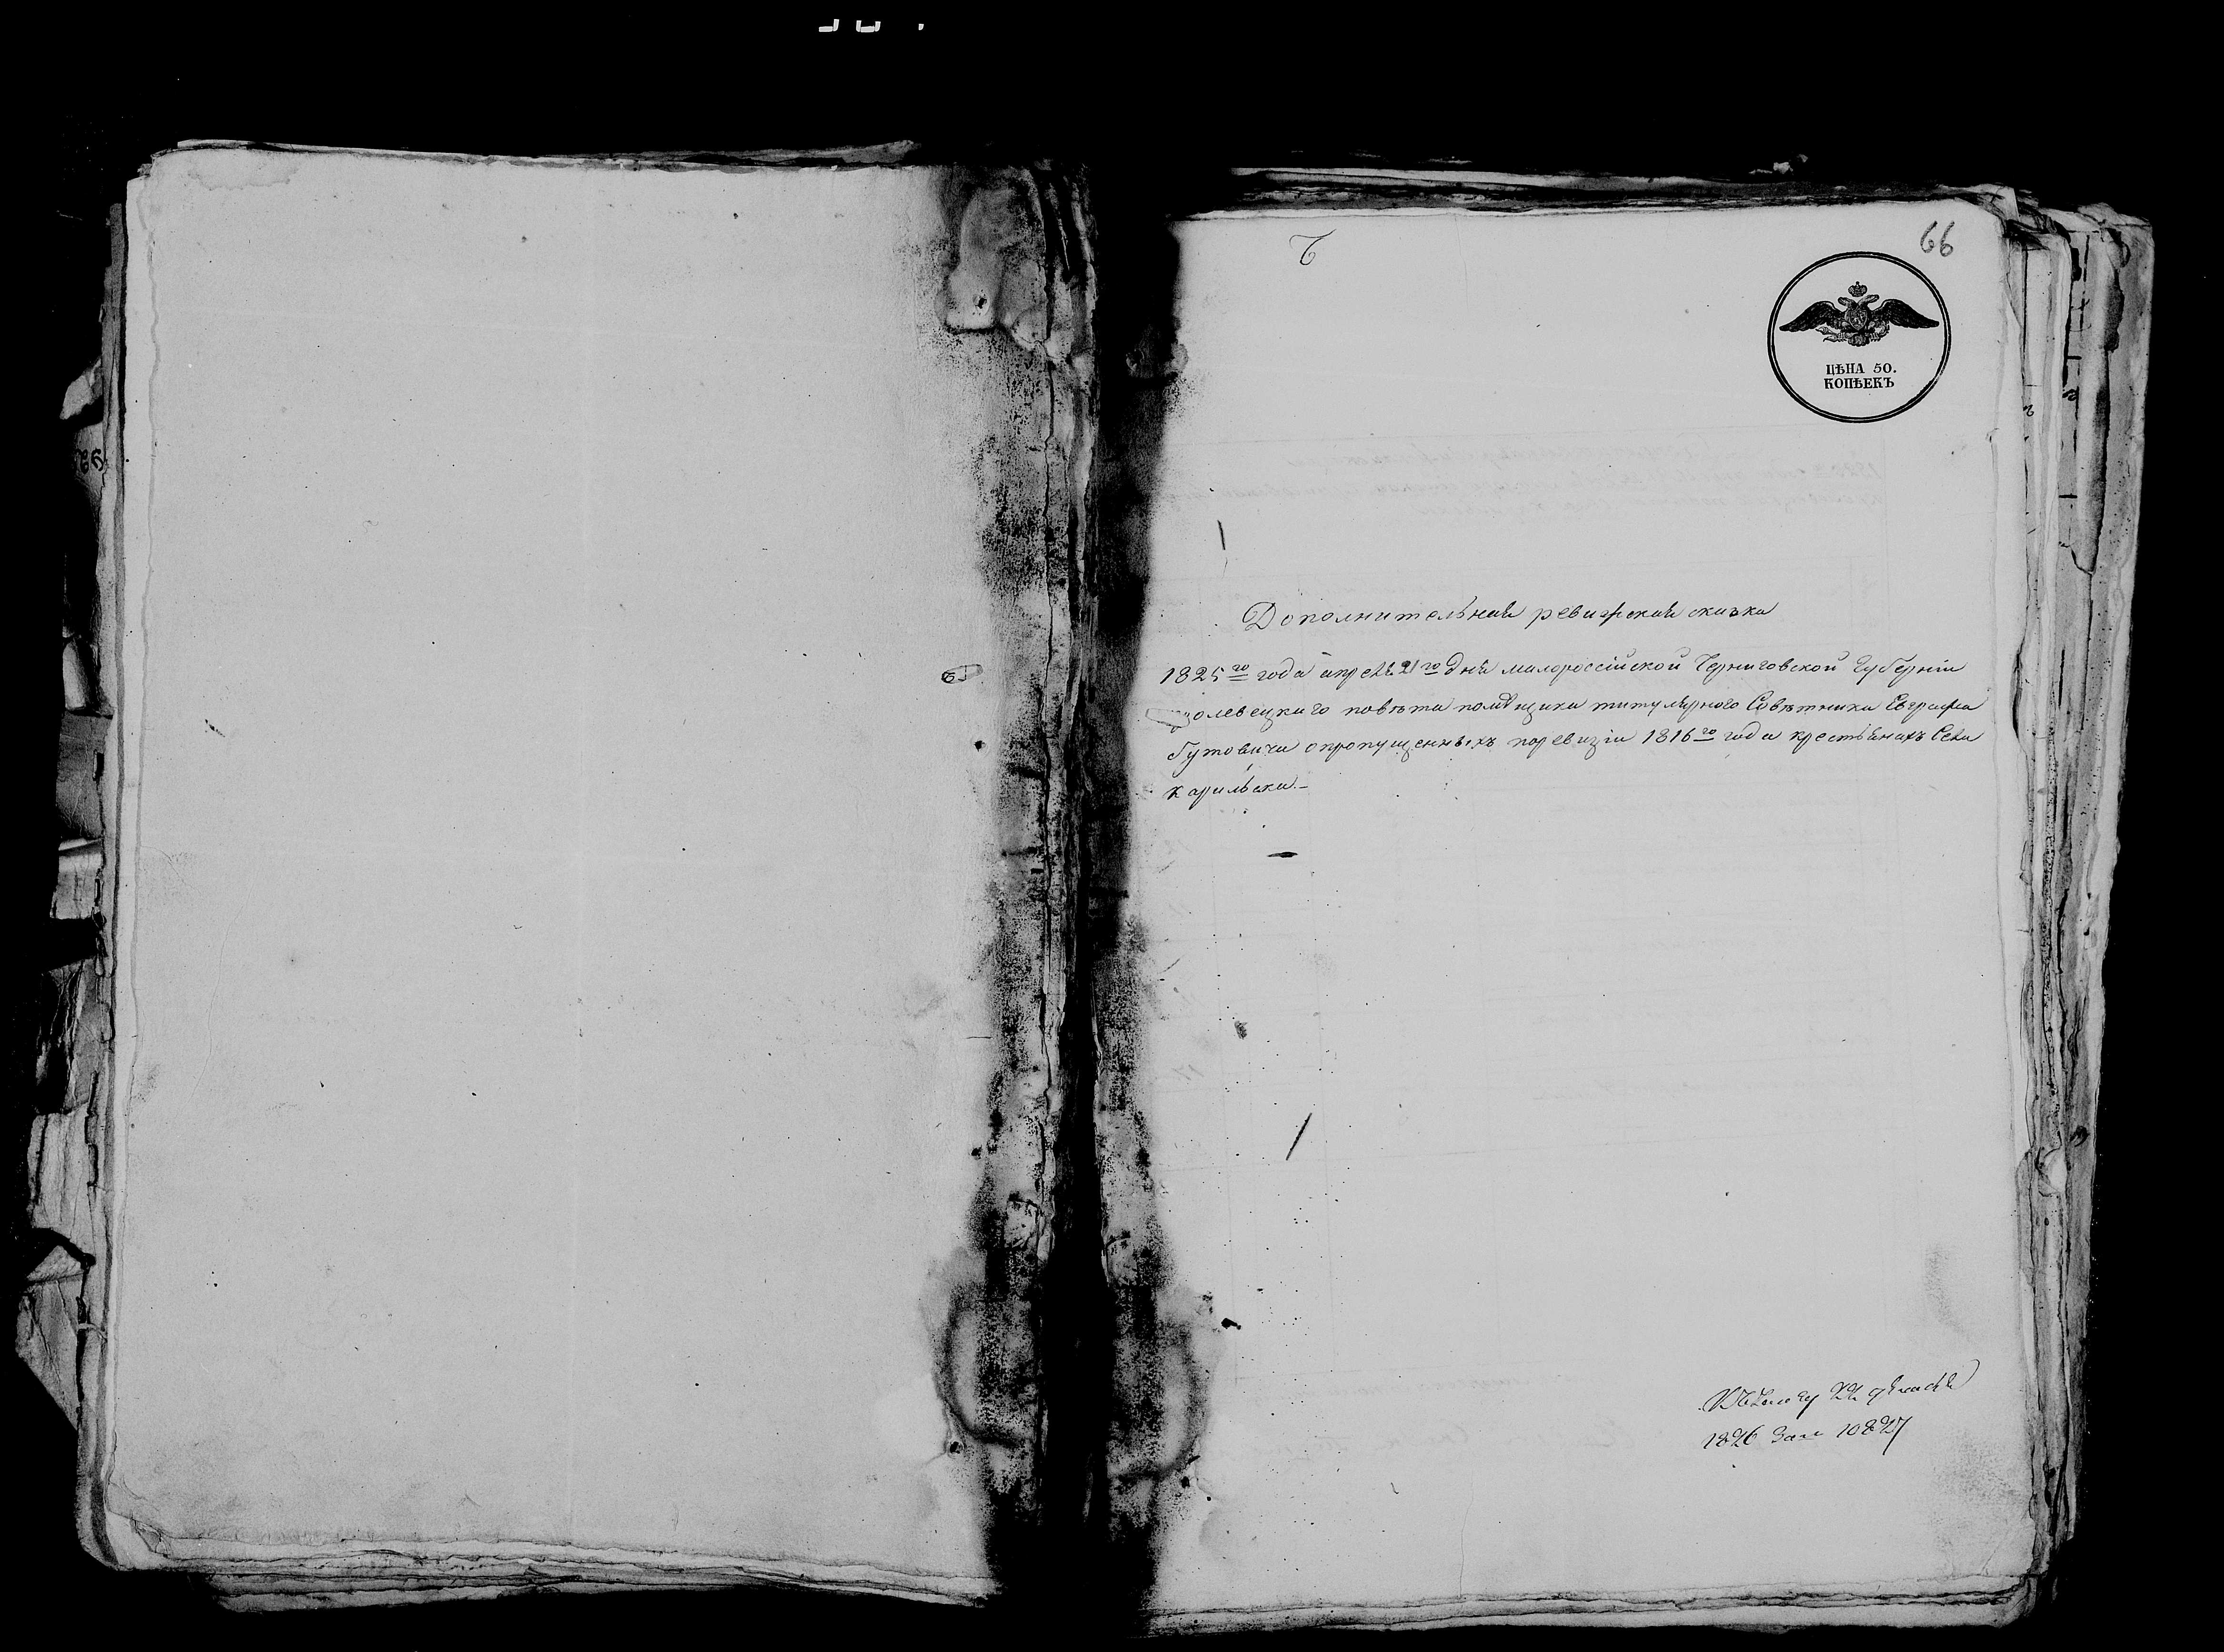 66
ЦѢНА 50.
КОПѢЕКЪ
Дополнительная ревизская сказка
1825го года апреля 21го дня малороссійской Черниговской Губерніи
олевецкаго повѣта помѣщика титулярного Совѣтника Евграфа
Гутовича опропущенныхъ поревизіи 1816го года крестьянахъ Села
Карильска.
1826